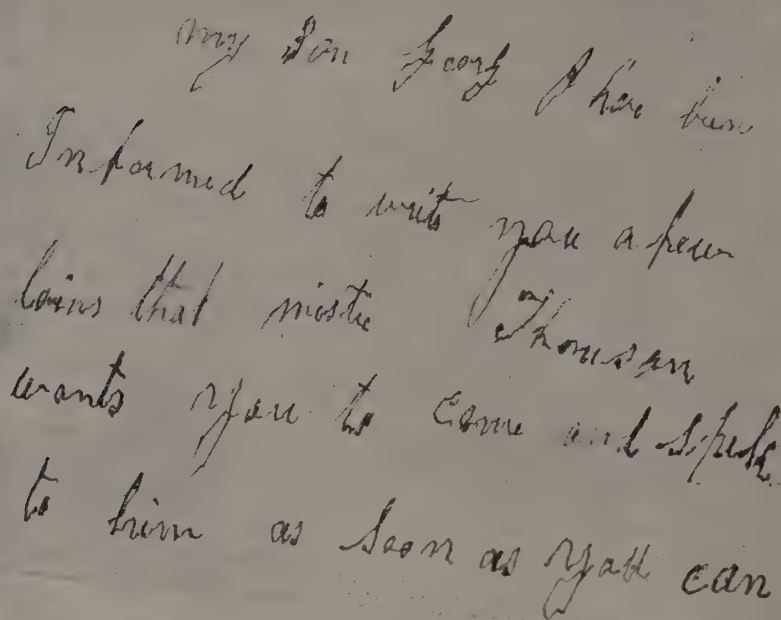 my Son georg I have bun
Informed to writ you a few
lains that mistu Thomsan
wants you to come and speek
to him as soon as you can